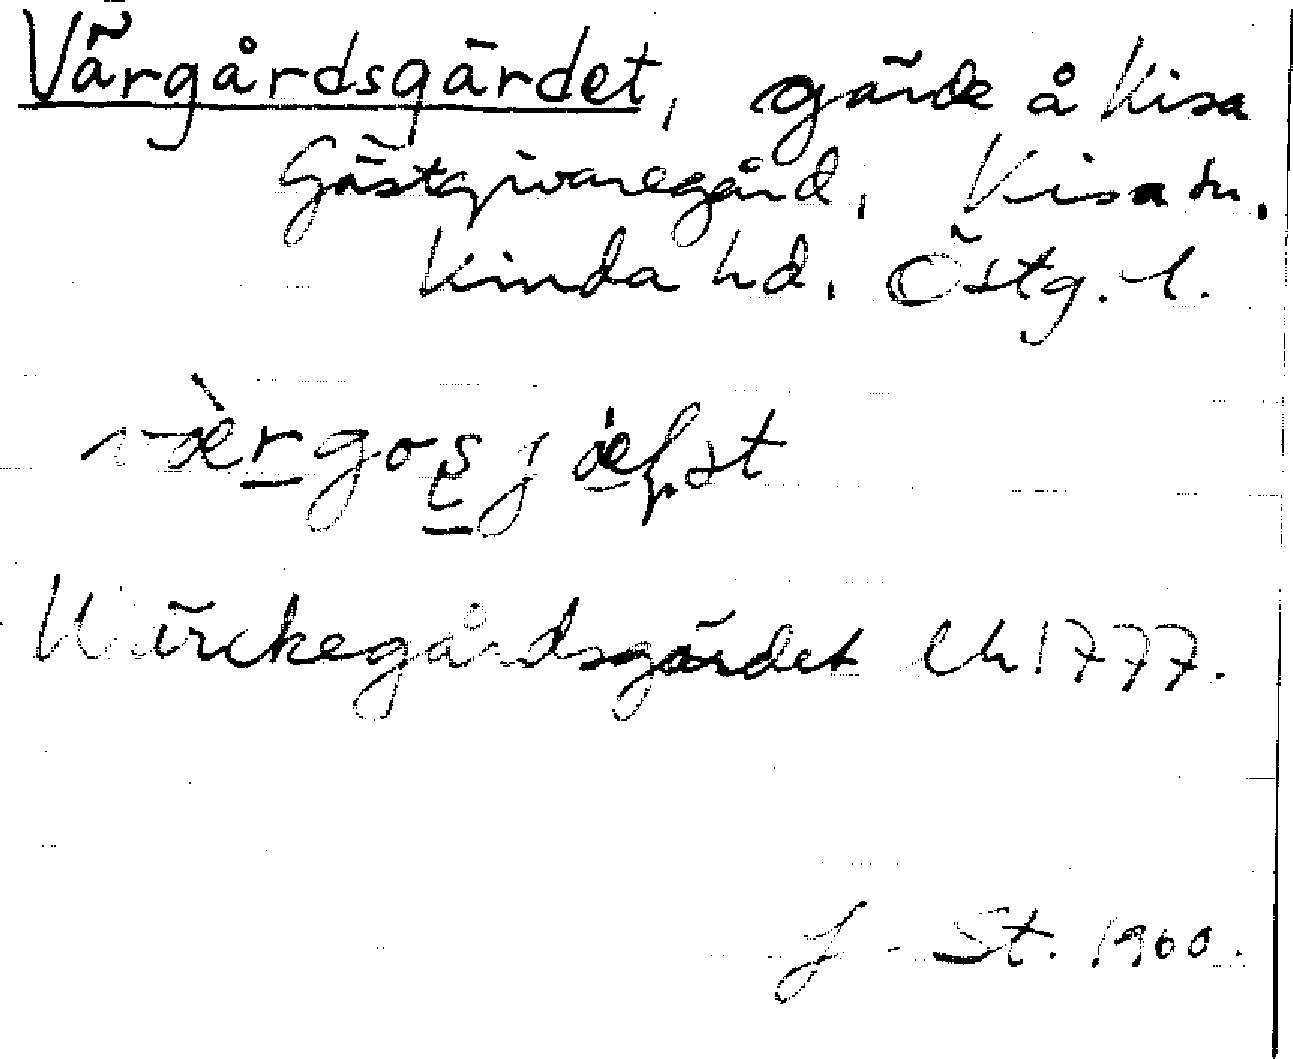 Värgårdsgärdet, gärde å Kisa
Gästgivaregård, Kisa sn,
Kinda hd, Östg. l.
Wärckegårdsgärdet LH 1777.
J. St. 1960.